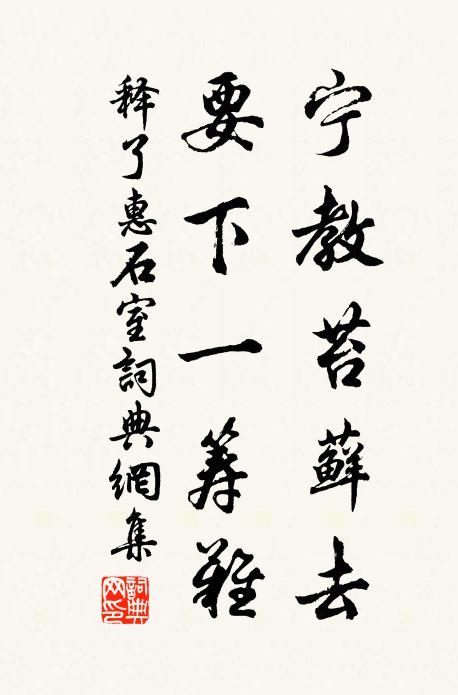 宁教苔藓去
要下一筹难
释了惠石室詞典網集
詞典网印